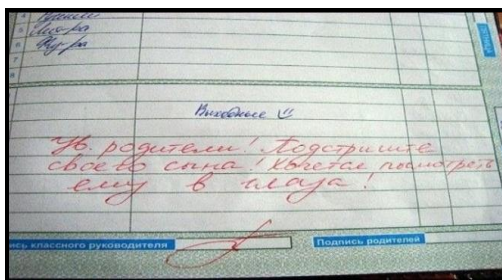 4
5
6
7
8
Выходные
Ув. родители! Подстригите
своево сына! Хочется посмотреть
ему в глаза!
ись классного руководителя
Подпись родителей